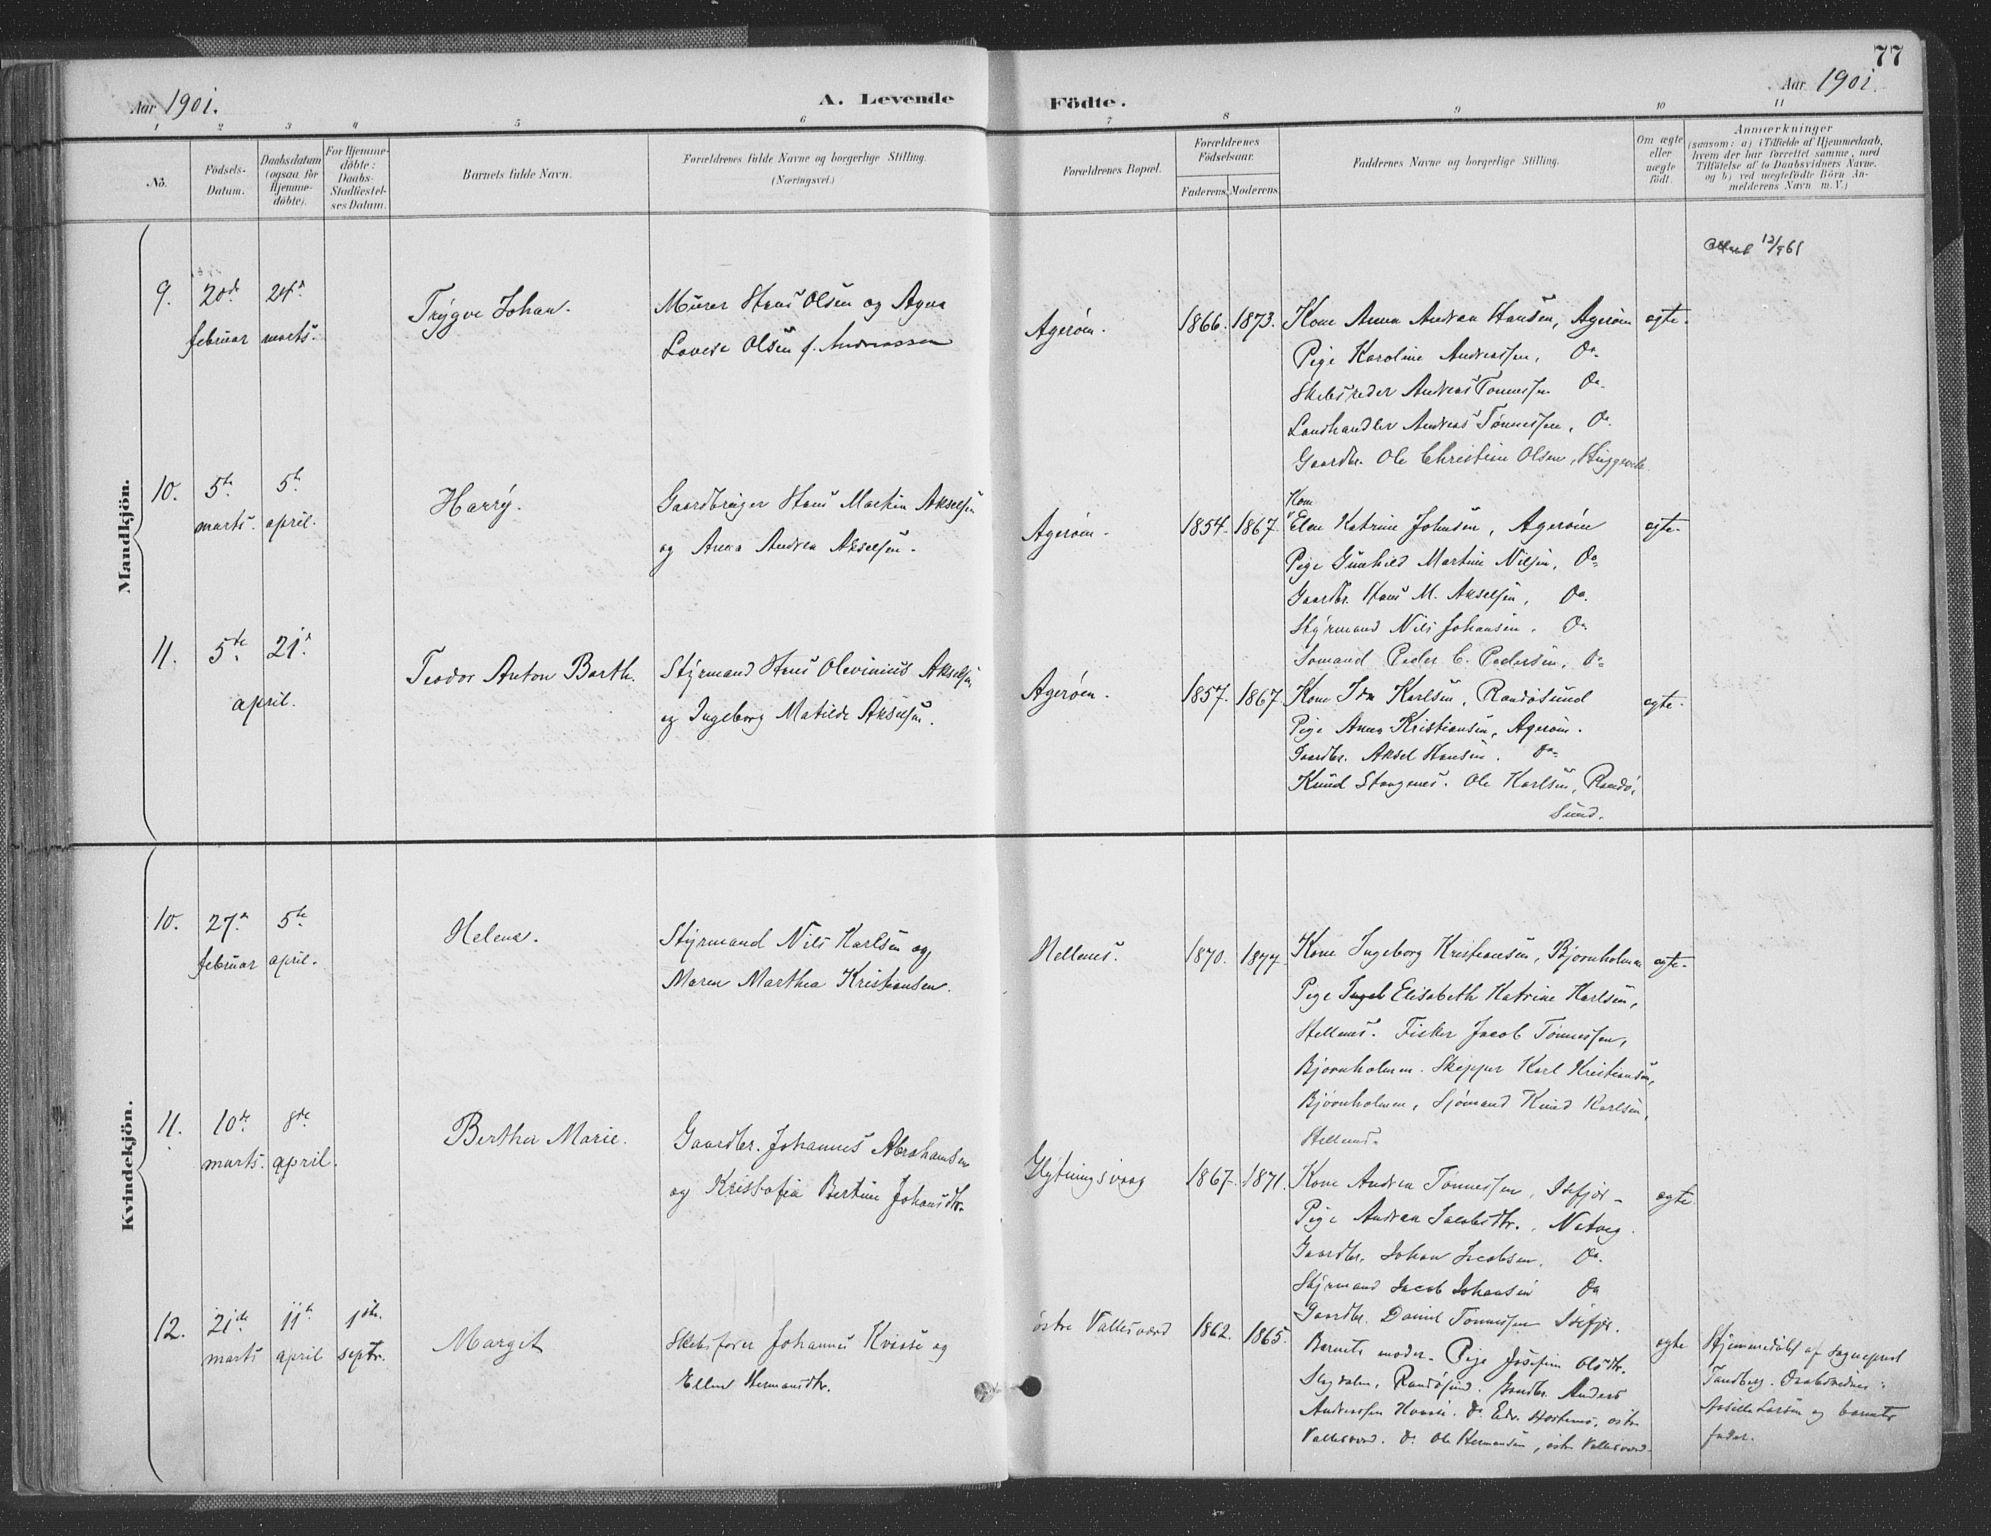 77
Aar 1901.
A. Levende Födte.
Aar 1901.
1 2 3 4 5 6 7 8 9 10 11
No.
Födsels-Datum.
Daabsdatum (ogsaa for Hjemme-döbte).
For Hjemme-döbte: Daabs-Stadfæstel-ses Datum.
Barnets fulde Navn.
Forældrenes fulde Navne og borgerlige Stilling.
(Næringsvei.)
Forældrenes Bopæl.
Forældrenes Födselsaar.
Faderens. Moderens.
Faddernes Navne og borgerlige Stilling.
Om ægte eller uægte födt.
Anmærkninger
(saasom: a) i Tilfælde af Hjemmedaab,
hvem der har forrettet samme, med
Tilföielse af to Daabsvidners Navne.
og b) ved uegtefödte Börn An-
melderens Navn m. V.)
Mandkjön.
12/9 61
9. 20de februar 24de marts.
Trygve Johan.
Murer Hans Olsen og Agna
Lovise Olsen f. Andreassen
Agerøen. 1866. 1873.
Kone Anna Andrea Hansen, Agerøen ægte.
Pige Karoline Andreassen, Do.
Skibsreder Andreas Tønnessen Do.
Landhandler Andreas Tønnessen, Do.
Gaardbr. Ole Christian Olsen,
10. 5te marts. 5te april.
Harry.
Gaardbruger Hans Martin Akselsen
og Anna Andrea Akselsen.
Agerøen. 1854. 1867.
Kone
Elen Katrine Johnsen, Agerøen ægte.
Pige Gunhild Martine Nilsen, Do.
Gaardbr. Hans M. Akselsen, Do.
Styrmand Nils Johansen. Do
Sømand Peder C. Pedersen, Do.
11. 5te 21de april.
Teodor Anton Barth.
Styrmand Hans Olevinius Akselsen
og Ingeborg Matilde Akselsen.
Agerøen. 1857. 1867.
Kone Ida Karlsen, Randøsund ægte.
Pige Anna Kristiansen, Agerøen.
Gaardbr. Aksel Hansen. Do.
Knud Stangenes. Ole Karlsen, Randø-
sund.
Kvindekjön.
10. 27de februar 5te april.
Helena.
Styrmand Nils Karlsen og
Maren Marthea Kristiansen.
Hellenes. 1870. 1877.
Kone Ingeborg Kristiansen, Bjørnholmen ægte.
Pige Elisabeth Katrine Karlsen,
Hellenes. Fisker Jacob Tønnessen,
Bjørnholmen. Skipper Karl Kristiansen,
Bjørnholmen, Sjømand Knud Karlsen,
Hellenes.
11. 10de marts. 8de april.
Berthe Marie.
Gaardbr. Johannes Abrahamsen
og Bertine Johansdtr.
1867. 1871.
Kone Andrea Tønnessen, Isefjær. ægte.
Pige Andrea Jacobsdtr.,
Gaardbr. Johan Jacobsen, Do.
Styrmand Jacob Johansen Do
Gaardbr. Daniel Tønnessen Isefjær.
12. 21de marts 11te april 1ste septr.
Margit
Skibsfører Johannes Kvisse og
Ellen Hermansdtr.
østre Vallesværd 1862. 1865.
Barnets moder. Pige Josefine Olsdtr. ægte
Randøsund. Gaardbr. Anders
Andreassen Do. østre
Vallesværd. Do. Ole Hermansen, østre Vallesværd.
Hjemmedøbt af sognepræst
Tandberg. Daabsvidner:
Larsen og barnets
fader.